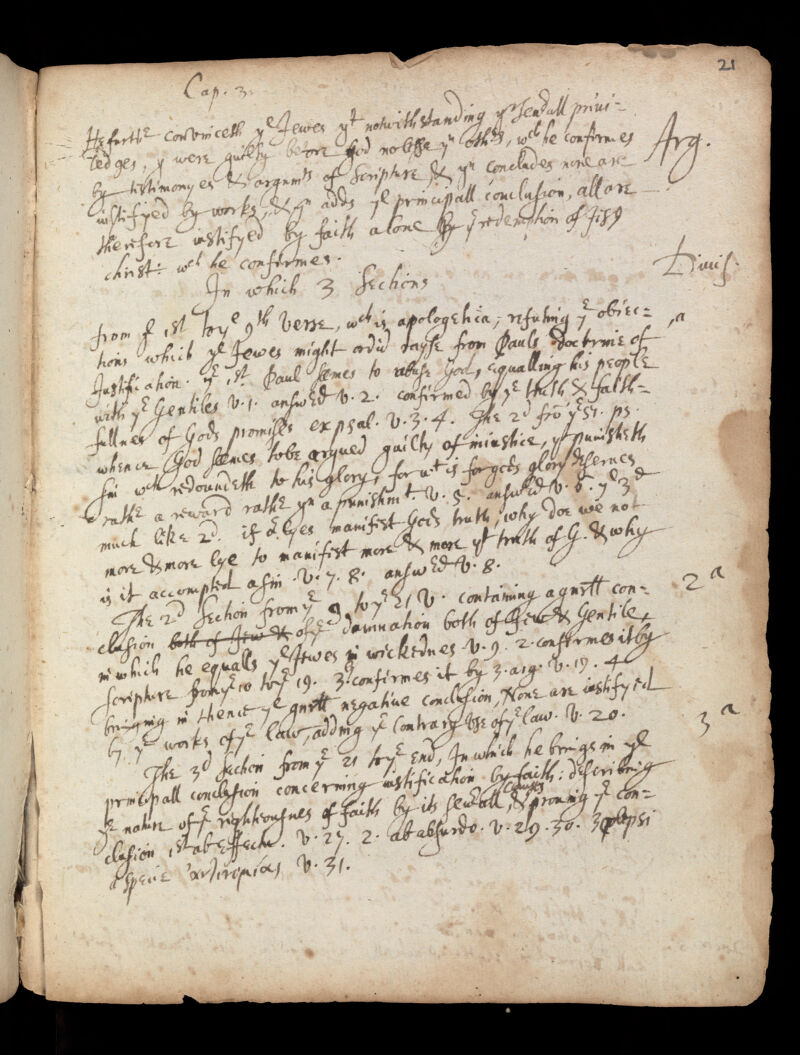 21
Cap. 3.
He furthr convinceth ye Jewes yt notwithstanding yr severall privi-
ledges, yy were guilty before God no lesse yn othrs, wch he confirmes
Arg.
by testimonyes & argumts of Scripture, & yn concludes none are
iustifyed by works, & yn adds ye principall conclusion, all are
therefore iustifyed by faith alone by ye redemption of Jesus
Christ: wch he confirmes.
In which 3 Sections
Divis.
from ye 1st to ye 9th Verse, wch is apologetica; refuting ye obiec-
1a
tions which ye Jewes might raysse from Pauls doctrine of
Justification. ye 1st. Paul semes to abuse God, equalling his people
with ye Gentiles v. 1. answed v. 2. confirmed by ye truth & faith-
fullnes of Gods promises ex psal. v. 3. 4. The 2d fro ye 51. ps.
whence God semes to be argued guilty of iniustice, yt punisheth
sin wch redoundeth to his glory, for wt is for gods glory deserves
rathr a reward rathr yn a punishmt v. 5. answed v. 6. ye 3d
much like 2d. if or lyes manifest Gods truth, why doe we not
more & more lye to manifest more & more yt truth of G. & why
is it accompted a sin. v. 7. 8. answed v. 8.
The 2d Section from ye 9 to ye 21 v. containing a genrll con-
2a
clusion both of Jew & of ye damnation both of Jew & Gentile,
in which he equalls ye Jewes in wickednes v. 9. 2. confirmes it by
Scripture from ye 10 to ye 19. 3. confirmes it by 3. arg. v. 19. 4
bringing in thence ye genrll negative conclusion, None are iustifyed
by ye works of ye law, adding ye contrary use of ye law. v. 20.
3a
The 3d Section from ye 21 to ye end, In which he brings in ye
principall conclusion concerning iustification by faith: describing
ye nature of ye righteousnes of faith by its severall causes, & proving ye con-
clusion 1st ab effectu. v. 27. 2. ab absurdo. v. 29. 30. 3
a specie v. 31.